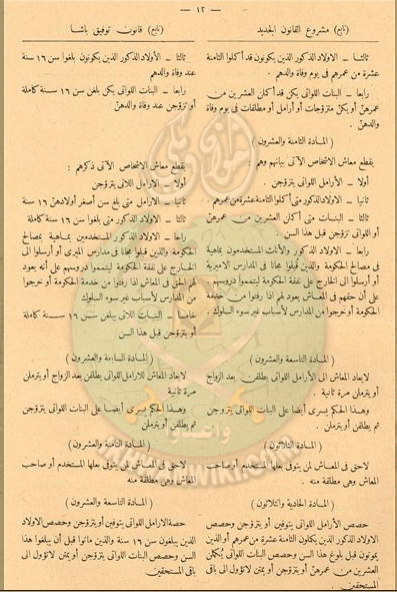 — ١٢ —
(تابع) مشروع القانون الجديد
ثالثا — الاولاد الذكور الذين يكونون قد أكملوا الثامنة
عشرة من عمرهم فى يوم وفاة والدهم .
رابعا — البنات اللواتى يكن قد أكملن العشرين من
عمرهنّ أو يكنّ متزوجات أو أرامل أو مطلقات فى يوم وفاة
والدهنّ .
(المادة الثامنة والعشرون)
يقطع معاش الاشخاص الآتى بيانهم وهم :
أولا — الأرامل اللواتى يتزوجن .
ثانيا — الاولاد الذكور متى أكملوا الثامنة عشرة من عمرهم .
ثالثا — البنات متى أكملن العشرين من عمرهن
أو اللواتى تزوجن قبل هذا السن
رابعا — الاولاد الذكور والأناث المستخدمون بماهية
فى مصالح الحكومة والذين قبلوا مجانا فى المدارس الاميرية
أو أرسلوا الى الخارج على نفقة الحكومة ليتمموا دروسهم .
على أن حقهم فى المعاش يعود لهم اذا رفتوا من خدمة
الحكومة أو خرجوا من المدارس لأسباب غير سوء السلوك .
(المادة التاسعة والعشرون)
لايعاد المعاش الى الأرامل اللواتى يطلقن بعد الزواج
أو يترملن مرة ثانية .
وهذا الحكم يسرى أيضا على البنات اللواتى يتزوجن
ثم يطلقن أو يترملن .
(المادة الثلاثون)
لاحق فى المعاش لمن يتوفى بعلها المستخدم أو صاحب
المعاش وهى مطلقة منه .
(المادة الحادية والثلاثون)
حصص الأرامل اللواتى يتوفين أو يتزوجن وحصص
الاولاد الذكور الذين يكملون الثامنة عشرة من عمرهم أو الذين
يموتون قبل بلوغ هذا السن وحصص البنات اللواتى يُكملن
العشرين من عمرهنّ أو يتزوجن أو يمتن لاتؤول الى باقى
المستحقين .
(تابع) قانون توفيق باشا
ثالثا — الأولاد الذكور الذين يكونون بلغوا سن ١٦ سنة
عند وفاة والدهم
رابعا — البنات اللواتى يكن بلغن سن ١٦ سنة كاملة
أو تزوجن عند وفاة والدهنّ
يقطع معاش الاشخاص الآتى ذكرهم :
أولا — الارامل اللاتى يتزوجن
ثانيا — الارامل متى بلغ سن أصغر أولادهنّ ١٦ سنة
ثالثا — الاولاد الذكور متى بلغوا سن ١٦ سنة كاملة
رابعا — الاولاد الذكور المستخدمين بماهية بمصالح
الحكومة والذين قبلوا مجانا فى مدارس الميرى أو أرسلوا الى
الخارج على نفقة الحكومة ليتمموا دروسهم على أنه يعود
لهم الحق فى المعاش اذا رفتوا من خدمة الحكومة أو خرجوا
من المدارس لأسباب غير سوء السلوك
خامسا — البنات اللاتى يبلغن سن ١٦ سنة كاملة
أو يتزوجن قبل هذا السن
(المادة السابعة والعشرون)
لايعاد المعاش للارامل اللواتى يطلقن بعد الزواج أو يترملن
مرة ثانية
وهذا الحكم يسرى أيضا على البنات اللواتى يتزوجن
ثم يطلقن أو يترملن
(المادة الثامنة والعشرون)
لاحق فى المعاش لمن يتوفى بعلها المستخدم أو صاحب
المعاش وهى مطلقة منه
(المادة التاسعة والعشرون)
حصة الارامل اللواتى يتوفين أو يتزوجن وحصص الاولاد
الذين يبلغون سن ١٦ سنة والذين ماتوا قبل أن يبلغوا هذا
السن وحصص البنات اللواتى يتزوجن أو يمتن لاتؤول الى
باقى المستحقين
واعدوا
IKHWANWIKI.COM